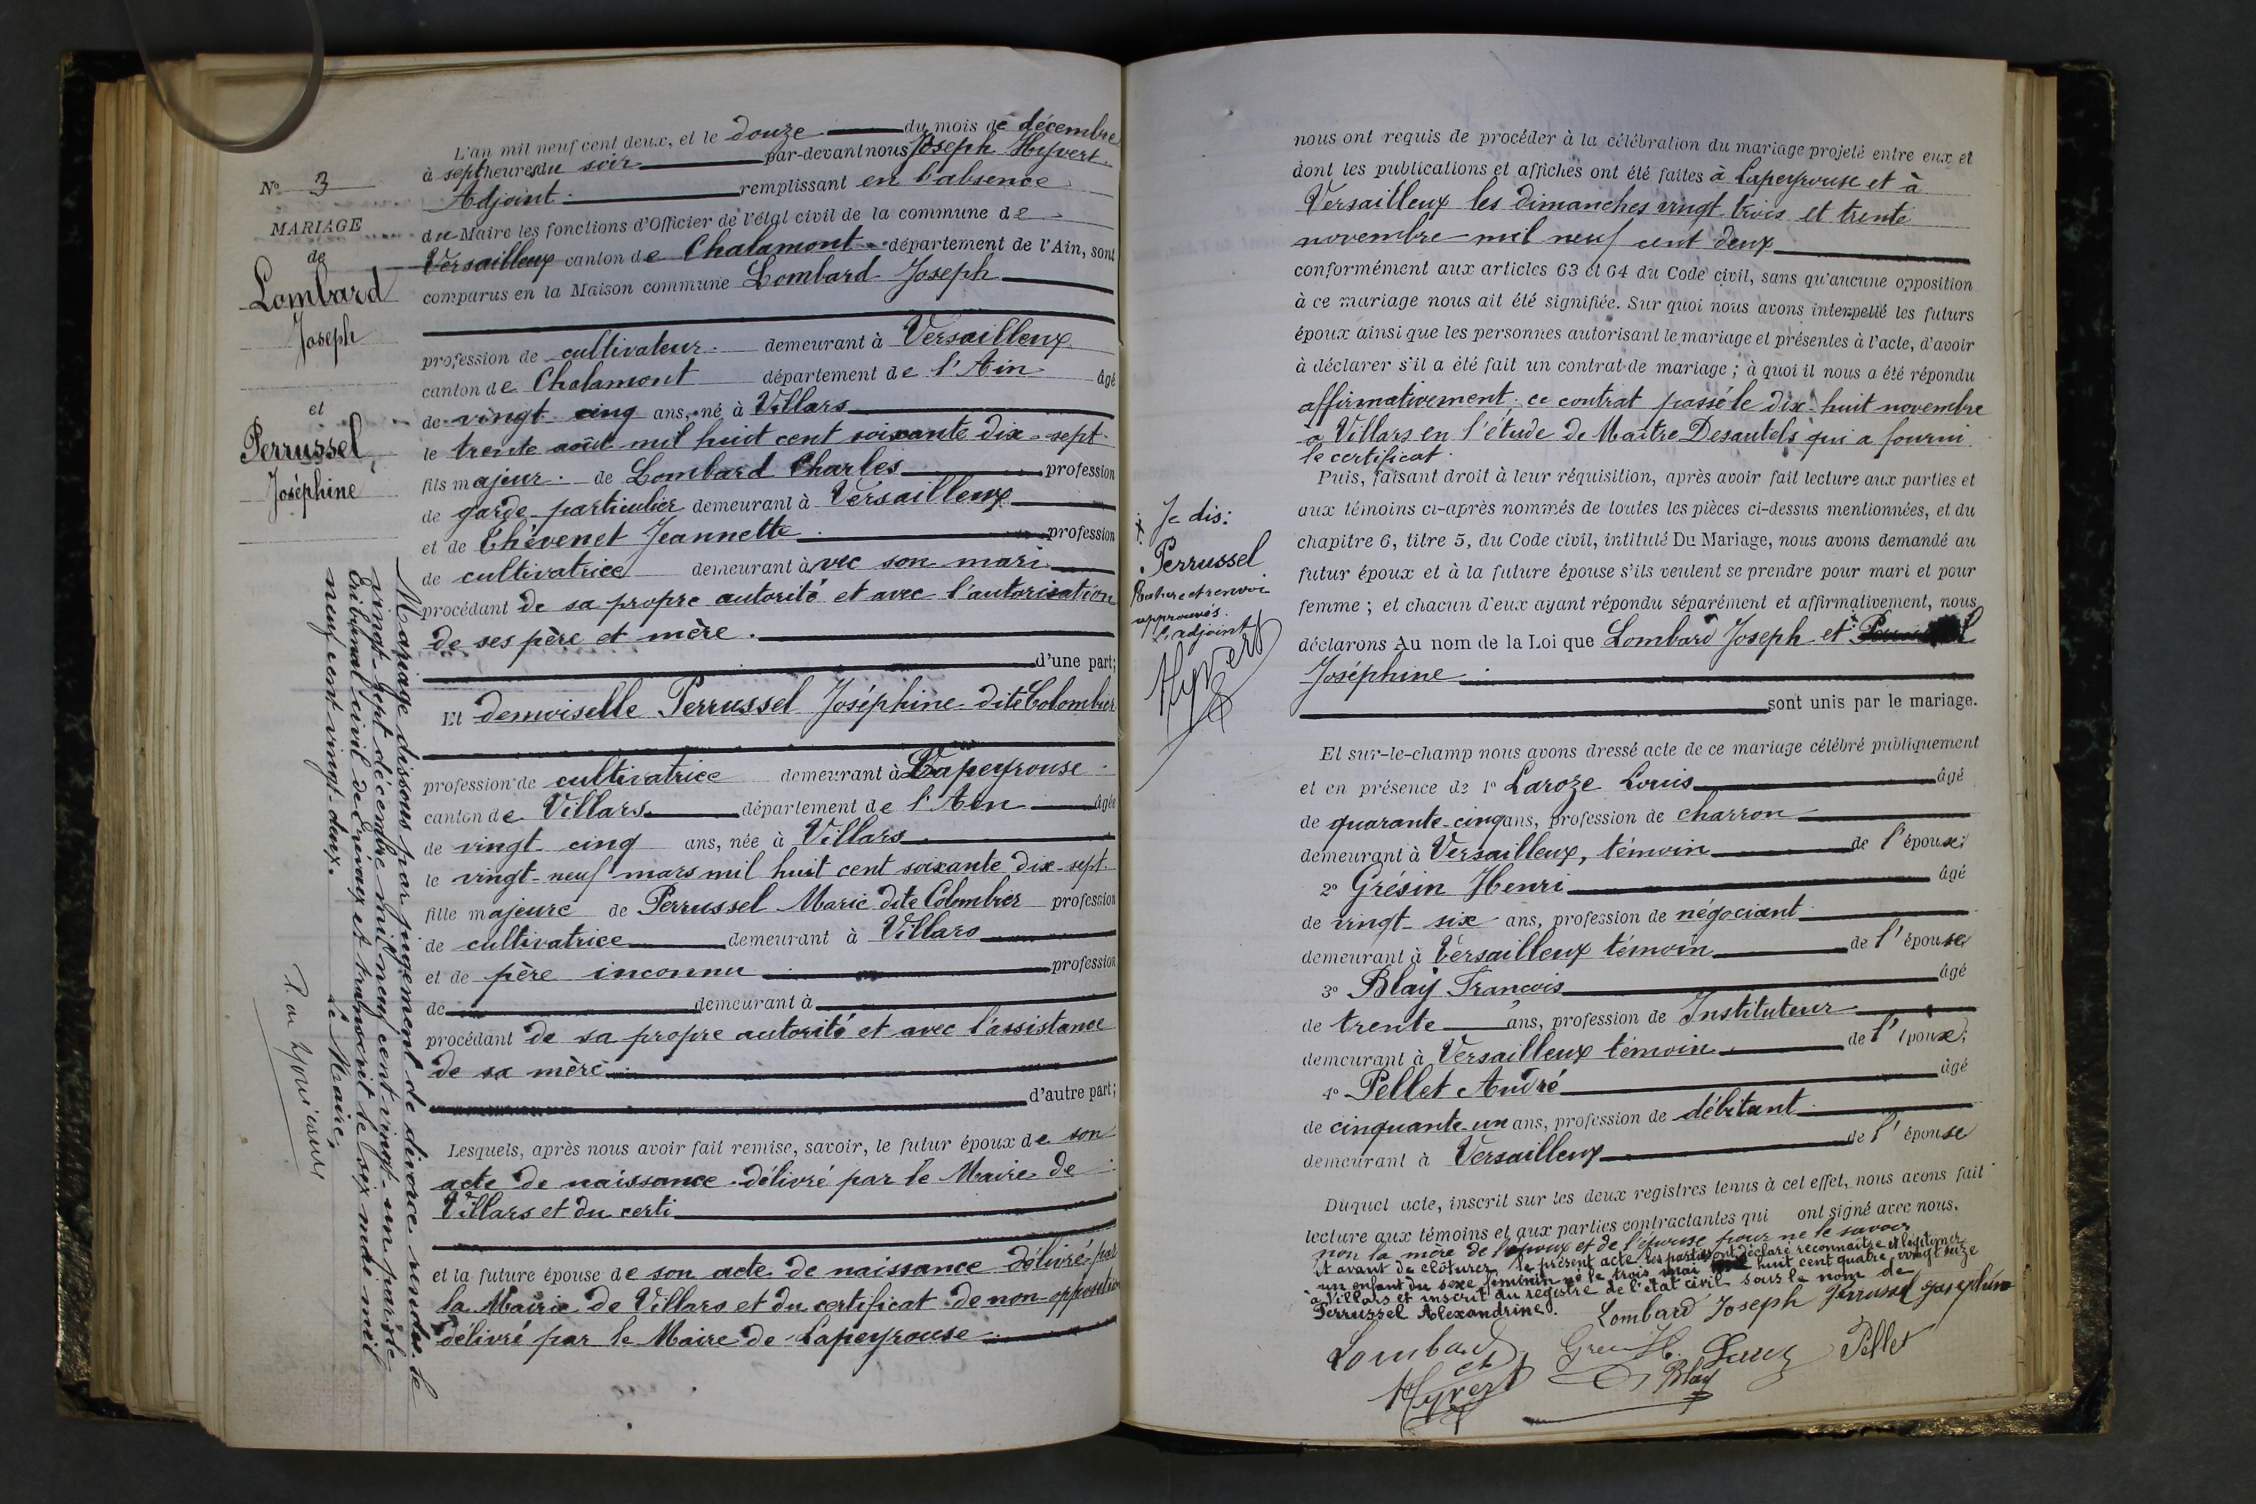 N° 3
MARIAGE
de
Lombard
Joseph
et
Perrussel
Joséphine
Mariage dissous par jugement de divorce rendu le
vingt-sept décembre mil neuf cent vingt-un par le
tribunal civil de Trévoux et transcrit le six mai mil
neuf cent vingt-deux.
Le Maire,
L'an mil neuf cent deux, et le douze du mois de décembre
à sept heures du soir par-devant nous Joseph Hyvert
Adjoint remplissant en l'absence
du Maire les fonctions d'Officier de l'état civil de la commune de
Versailleux canton de Chalamont département de l'Ain, sont
comparus en la Maison commune Lombard Joseph
profession de cultivateur demeurant à Versailleux
canton de Chalamont département de l'Ain âgé
de vingt cinq ans, né à Villars
le trente août mil huit cent soixante dix-sept
fils majeur de Lombard Charles profession
de garde particulier demeurant à Versailleux
et de Thévenet Jeannette profession
de cultivatrice demeurant avec son mari
procédant de sa propre autorité et avec l'autorisation
de ses père et mère.
d'une part;
Et demoiselle Perrussel Joséphine dite Colombier
profession de cultivatrice demeurant à Lapeyrouse
canton de Villars département de l'Ain âgée
de vingt cinq ans, née à Villars
le vingt-neuf mars mil huit cent soixante dix-sept
fille majeure de Perrussel Marie dite Colombier profession
de cultivatrice demeurant à Villars
et de père inconnu profession
de demeurant à
procédant de sa propre autorité et avec l'assistance
de sa mère
d'autre part;
Lesquels, après nous avoir fait remise, savoir, le futur époux de son
acte de naissance délivré par le Maire de
Villars et du certi
et la future épouse de son acte de naissance délivré par
la Mairie de Villars et du certificat de non-opposition
délivré par le Maire de Lapeyrouse
nous ont requis de procéder à la célébration du mariage projeté entre eux et
dont les publications et affiches ont été faites à Lapeyrouse et à
Versailleux les dimanches vingt trois et trente
novembre mil neuf cent deux
conformément aux articles 63 et 64 du Code civil, sans qu'aucune opposition
à ce mariage nous ait été signifiée. Sur quoi nous avons interpellé les futurs
époux ainsi que les personnes autorisant le mariage et présentes à l'acte, d'avoir
à déclarer s'il a été fait un contrat de mariage; à quoi il nous a été répondu
affirmativement; ce contrat passé le dix-huit novembre
à Villars en l'étude de Maître Desautels qui a fourni
le certificat.
Puis, faisant droit à leur réquisition, après avoir fait lecture aux parties et
aux témoins ci-après nommés de toutes les pièces ci-dessus mentionnées, et du
chapitre 6, titre 5, du Code civil, intitulé Du Mariage, nous avons demandé au
futur époux et à la future épouse s'ils veulent se prendre pour mari et pour
femme; et chacun d'eux ayant répondu séparément et affirmativement, nous
déclarons Au nom de la Loi que Lombard Joseph et
Joséphine
sont unis par le mariage.
Je dis:
Perrussel
Rature et renvoi
approuvés.
l'adjoint
Hyvert
Et sur-le-champ nous avons dressé acte de ce mariage célébré publiquement
et en présence de 1° Laroze Louis âgé
de quarante-cinq ans, profession de charron
demeurant à Versailleux, témoin de l'époux;
2° Grésin Henri âgé
de vingt-six ans, profession de négociant
demeurant à Versailleux témoin de l'épouse
3° Blay François âgé
de trente ans, profession de Instituteur
demeurant à Versailleux témoin de l'époux;
4° Pellet André âgé
de cinquante-un ans, profession de débitant
demeurant à Versailleux de l'épouse
Duquel acte, inscrit sur les deux registres tenus à cet effet, nous avons fait
lecture aux témoins et aux parties contractantes qui ont signé avec nous.
non la mère de l'époux et de l'épouse pour ne le savoir
Et avant de clôturer le présent acte les parties ont déclaré reconnaître et légitimer
un enfant du sexe féminin né le trois mai huit cent quatre vingt seize
à Villars et inscrit au registre de l'état civil sous le nom de
Perrussel Alexandrine.
Lombard Joseph Perrussel Joséphine
Lombard
Pellet
Blay
Hyvert